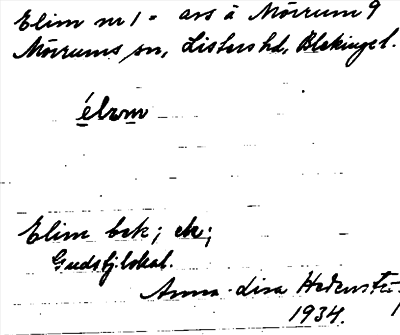 Elim nr 1 = avs å Mörrum 9
Mörrums sn, Listers hd, Blekinge l.
élim
Elim bek; ek;
Gudstj.lokal.
Anna-Lisa Hedenstr
1934.